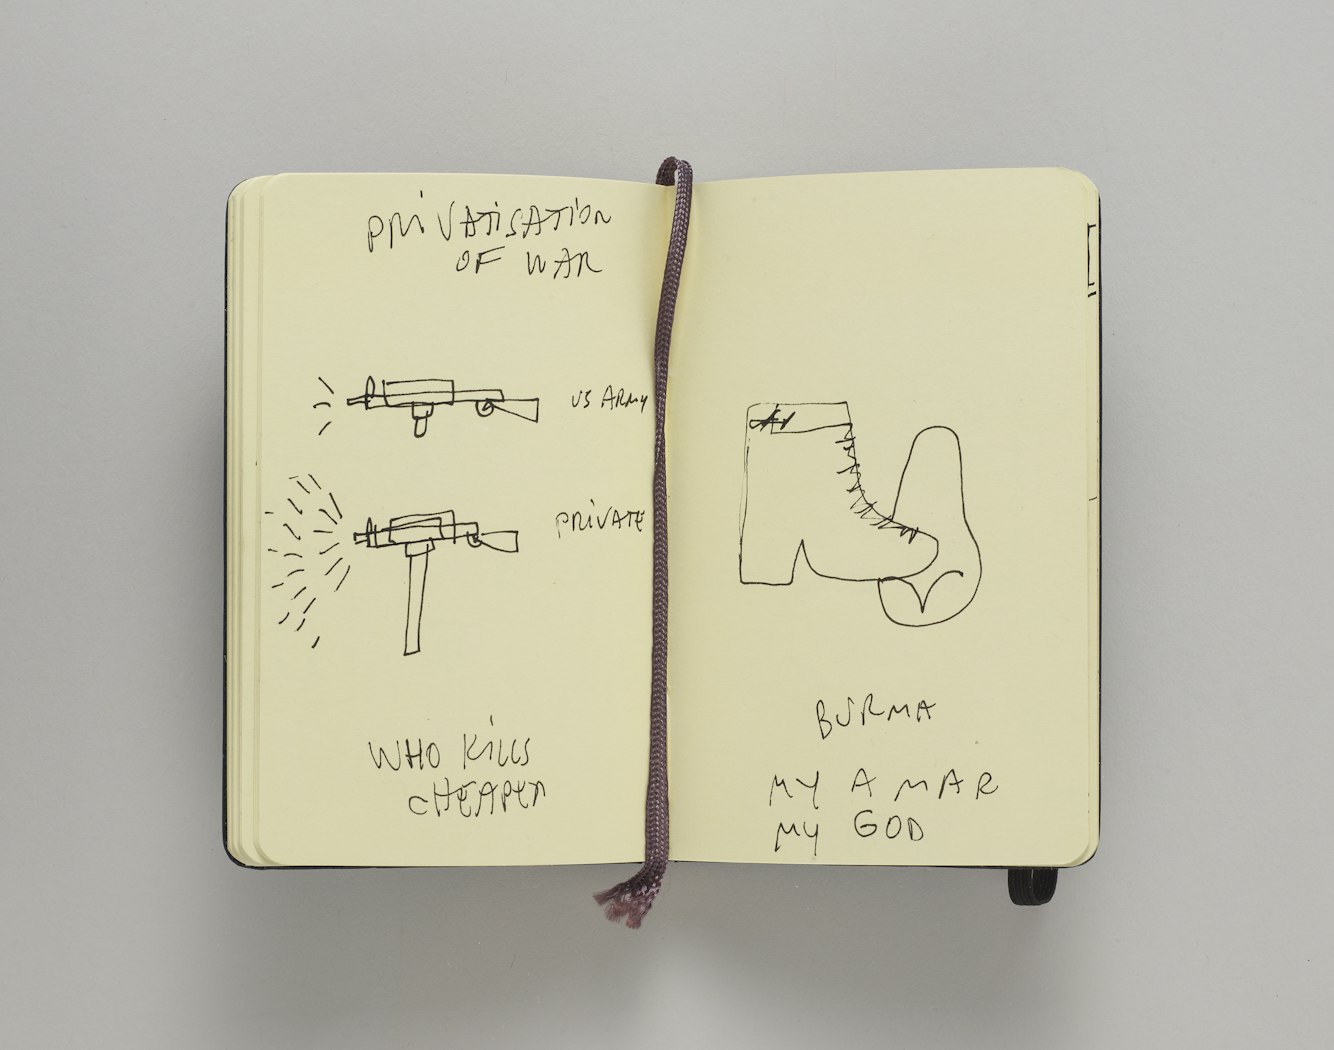 PRiVATiSATiON
OF WAR
US ARMY
PRiVATE
WHO KiLLS
CHEAPER
BURMA
MY A MAR
MY GOD